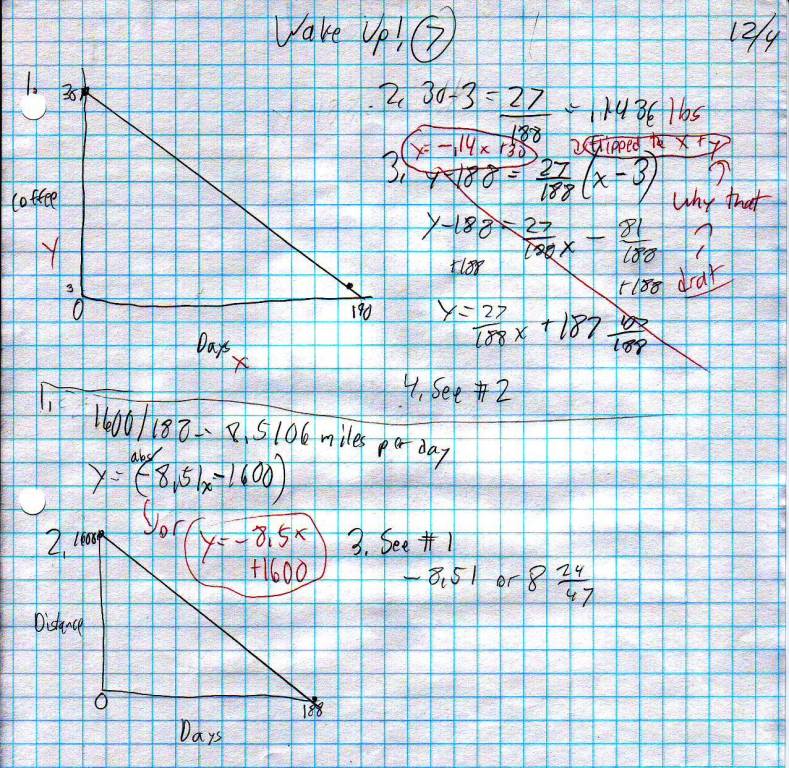 Wake Up! 7
12/4
1.
30
Coffee
Y
3
0
190
Days x
2. 30-3 = 27/188 = .1436 lbs
y = -.14x + 30
flipped the x + y
Why that
drat
3. y-188 = 27/188 (x-3)
y-188 = 27/188 x - 81/188
+188 +188
y = 27/188 x + 187
4. See #2
1.
1600/188 = 8.5106 miles per day
abs
y = (-8.51x-1600)
or y = -8.5x
+1600
2. 1600
Distance
0
188
Days
3. See #1
-8.51 or 8 24/47